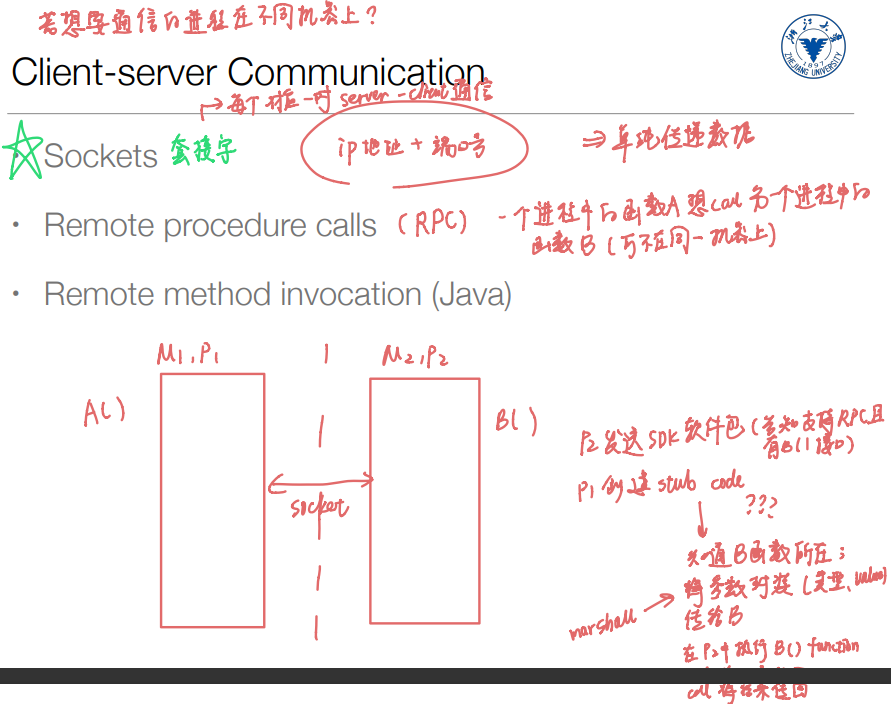 若想要通信的进程在不同机器上？
Client-server Communication
ZHEJIANG UNIVERSITY
1897
→每个对应一对 server-client通信
Sockets 套接字
ip地址 + 端口号
⇒ 单纯传递数据
• Remote procedure calls (RPC)
一个进程中的函数A想call另一个进程中的
函数B (可不在同一机器上)
• Remote method invocation (Java)
M1,P1
M2,P2
A( )
B( )
socket
P2发送SDK软件包(告知支持RPC且
有B( )接口)
P1创建stub code
???
知道B函数所在；
将参数封装(类型、value)
marshall
传给B
在P2中执行B() function
call 将结果传回